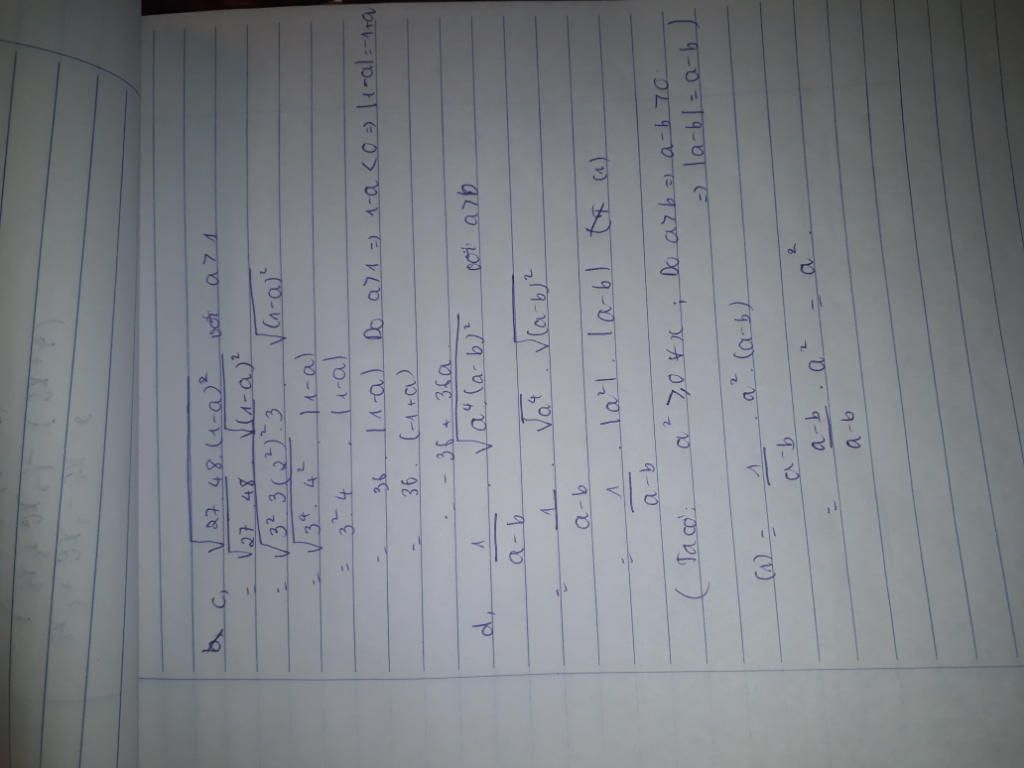 c, √(27.48.(1-a)²) với a > 1
= √(27.48) . √((1-a)²)
= √(3².3(2²)².3) . √((1-a)²)
= √(3⁴.4²) . |1-a|
= 3².4 . |1-a|
= 36 . |1-a| Do a>1 => 1-a < 0 => |1-a| = -1+a
= 36 . (-1+a)
= -36 + 36a
d, 1/(a-b) . √(a⁴(a-b)²) với a>b
= 1/(a-b) . √(a⁴) . √((a-b)²)
= 1/(a-b) . |a²| . |a-b| (1)
(Ta có: a² ≥ 0 ∀x ; Do a>b => a-b>0
=> |a-b| = a-b)
(1) = 1/(a-b) . a² . (a-b)
= (a-b)/(a-b) . a² = a²